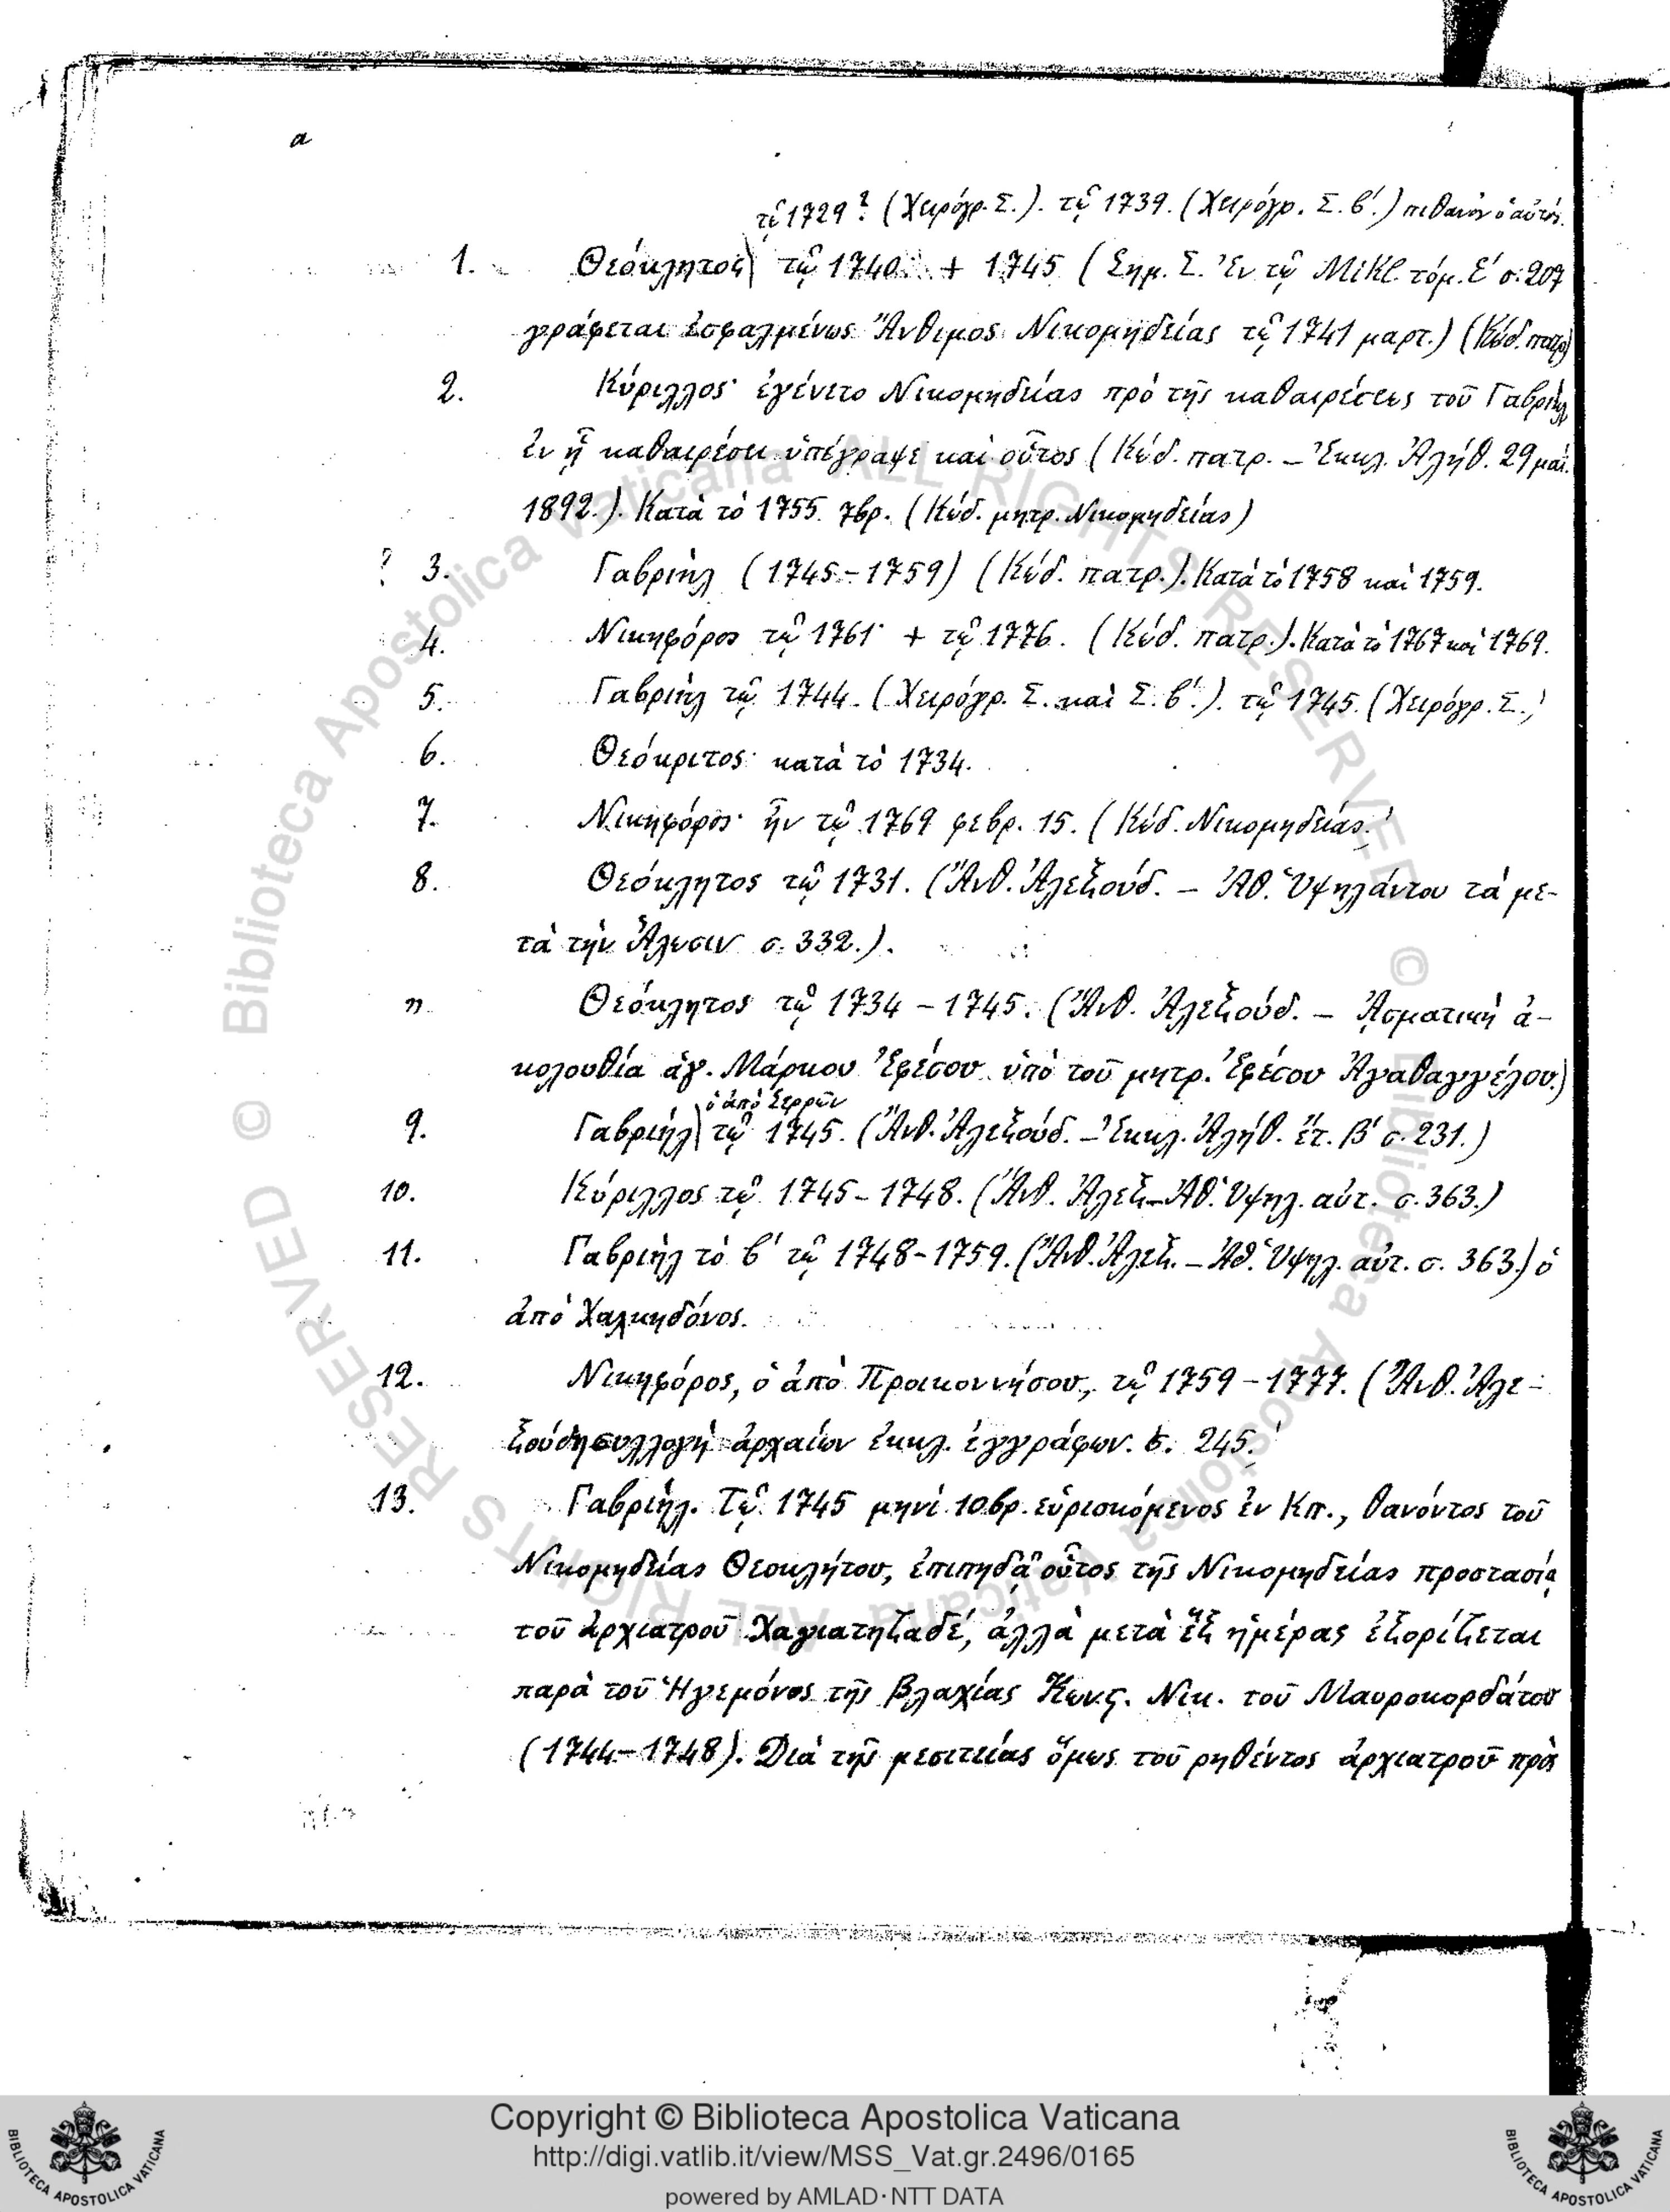 α
τῷ 1729? (Χειρόγρ. Σ.). τῷ 1739. (Χειρόγρ. Σ. β΄.) πιθανὸν ὁ αὐτός.
1. Θεόκλητος τῷ 1740 + 1745 (Σημ. Σ. Ἐν τῷ Mikl. τόμ. Ε΄ σ. 207
γράφεται ἐσφαλμένως Ἄνθιμος Νικομηδείας τῷ 1741 μαρτ.) (Κώδ. πατρ)
2. Κύριλλος· ἐγένετο Νικομηδείας πρὸ τῆς καθαιρέσεως τοῦ Γαβριὴλ
ἐν ᾗ καθαιρέσει ὑπέγραψε καὶ οὗτος (Κώδ. πατρ. – Ἐκκλ. Ἀλήθ. 29 μαΐ.
1892.). Κατὰ τὸ 1755. 7βρ. (Κώδ. μητρ. Νικομηδείας)
? 3. Γαβριὴλ (1745–1759) (Κώδ. πατρ.). Κατὰ τὸ 1758 καὶ 1759.
4. Νικηφόρος τῷ 1761· + τῷ 1776. (Κώδ. πατρ.). Κατὰ τὸ 1767 καὶ 1769.
5. Γαβριὴλ τῷ 1744. (Χειρόγρ. Σ. καὶ Σ. β΄.). τῷ 1745. (Χειρόγρ. Σ.)
6. Θεόκριτος· κατὰ τὸ 1734.
7. Νικηφόρος· ἦν τῷ 1769 φεβρ. 15. (Κώδ. Νικομηδείας.)
8. Θεόκλητος τῷ 1731. (Ἄνθ. Ἀλεξούδ. – Ἀθ. Ὑψηλάντου τὰ με-
τὰ τὴν Ἅλωσιν σ. 332.).
" Θεόκλητος τῷ 1734 – 1745. (Ἄνθ. Ἀλεξούδ. – Ἀσματικὴ ἀ-
κολουθία ἁγ. Μάρκου Ἐφέσου ὑπὸ τοῦ μητρ. Ἐφέσου Ἀγαθαγγέλου.)
ὁ ἀπὸ Σερρῶν
9. Γαβριὴλ τῷ 1745. (Ἄνθ. Ἀλεξούδ. – Ἐκκλ. Ἀλήθ. ἔτ. β΄ σ. 231.)
10. Κύριλλος τῷ 1745 – 1748. (Ἄνθ. Ἀλεξ. – Ἀθ. Ὑψηλ. αὐτ. σ. 363.)
11. Γαβριὴλ τὸ β΄ τῷ 1748–1759. (Ἄνθ. Ἀλεξ. – Ἀθ. Ὑψηλ. αὐτ. σ. 363.) ὁ
ἀπὸ Χαλκηδόνος.
12. Νικηφόρος, ὁ ἀπὸ Προικοννήσου, τῷ 1759 – 1777. (Ἄνθ. Ἀλε-
ξούδη συλλογὴ ἀρχαίων ἐκκλ. ἐγγράφων. σ. 245.)
13. Γαβριήλ. Τῷ 1745 μηνὶ 10βρ. εὑρισκόμενος ἐν Κπ., θανόντος τοῦ
Νικομηδείας Θεοκλήτου, ἐπιπηδᾷ οὗτος τῆς Νικομηδείας προστασίᾳ
τοῦ ἀρχιατροῦ Χαγιατηζαδέ, ἀλλὰ μετὰ ἓξ ἡμέρας ἐξορίζεται
παρὰ τοῦ Ἡγεμόνος τῆς Βλαχίας Κωνς. Νικ. τοῦ Μαυροκορδάτου
(1744–1748). Διὰ τῆς μεσιτείας ὅμως τοῦ ρηθέντος ἀρχιατροῦ πρὸς
© Biblioteca Apostolica Vaticana ALL RIGHTS RESERVED
© Biblioteca Apostolica Vaticana ALL RIGHTS RESERVED
Copyright © Biblioteca Apostolica Vaticana
http://digi.vatlib.it/view/MSS_Vat.gr.2496/0165
powered by AMLAD·NTT DATA
BIBLIOTECA APOSTOLICA VATICANA
BIBLIOTECA APOSTOLICA VATICANA